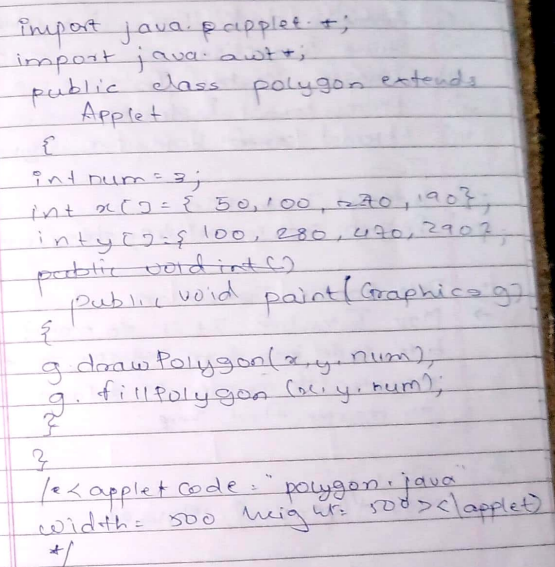 import java.applet.*;
import java.awt*;
public class polygon extends
Applet
{
int num=3;
int x[]={ 50,100,270,190};
int y[]={100, 280, 470, 290};
public void int()
public void paint(Graphics g)
{
g drawPolygon(x,y,num);
g. fillPolygon (x,y,num);
}
}
/*<applet code="polygon.java"
width= 500 height= 500></applet>
*/